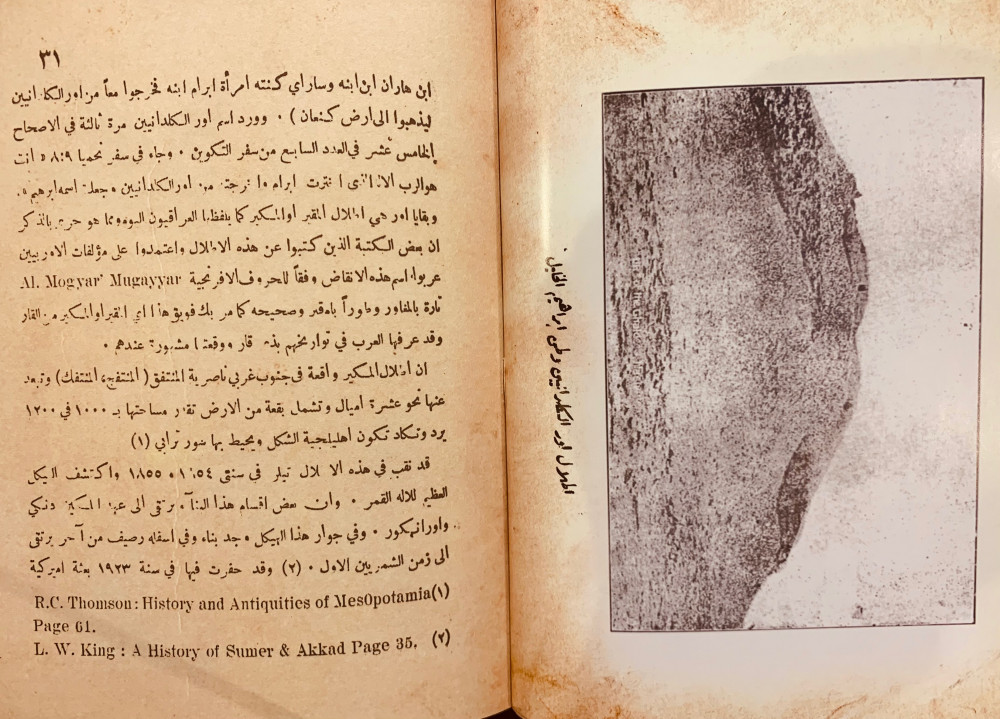 ٣١
ابن هاران ابن ابنه وساراي كنته امرأة ابرام ابنه فخرجوا معاً من اور الكلدانيين
ليذهبوا الى ارض كنعان ) ٠ وورد اسم اور الكلدانيين مرة ثالثة في الاصحاح
الخامس عشر في العدد السابع من سفر التكوين ٠ وجاء في سفر نحميا ٨:٩ « انت
هو الرب الاله الذي اخترت ابرام واخرجته من اور الكلدانيين وجعلت اسمه ابرهيم »٠
وبقايا اور هي اطلال المقير او المكير كما يلفظها العراقيون اليوم ومما هو حري بالذكر
ان بعض الكتبة الذين كتبوا عن هذه الاطلال واعتمدوا على مؤلفات الاوربيين
عربوا اسم هذه الانقاض وفقاً للحروف الافرنجية Al. Mogyar' Mugayyar
تارة بالمغاور وطوراً بام قير وصحيحه كما مر بك فويق هذا اي المقير او المكير من القار
وقد عرفها العرب في تواريخهم بذي قار ووقعتها مشهورة عندهم ٠
ان اطلال المكير واقعة في جنوب غربي ناصرية المنتفق ( المنتفج، المنتفك ) وتبعد
عنها نحو عشرة اميال وتشمل بقعة من الارض تقدر مساحتها بـ ١٠٠٠ في ١٢٠٠
يرد وتكاد تكون اهليلجية الشكل ويحيط بها سور ترابي (١)
قد نقب في هذه الاطلال تيلر في سنتي ١٨٥٤ و ١٨٥٥ واكتشف الهيكل
العظيم للاله القمر ٠ وان بعض اقسام هذا البناء يرتقي الى عهد الملكين دنكي
واور انكور ٠ وفي جوار هذا الهيكل وجد بناء وفي اسفله رصيف من آجر يرتقي
الى زمن الشمريين الاول ٠ (٢) وقد حفرت فيها في سنة ١٩٢٣ بعثة اميركية
R.C. Thomson: History and Antiquities of MesOpotamia(١)
Page 61.
L. W. King : A History of Sumer & Akkad Page 35. (٢)
اطلال اور الكلدانيين وطن ابراهيم الخليل